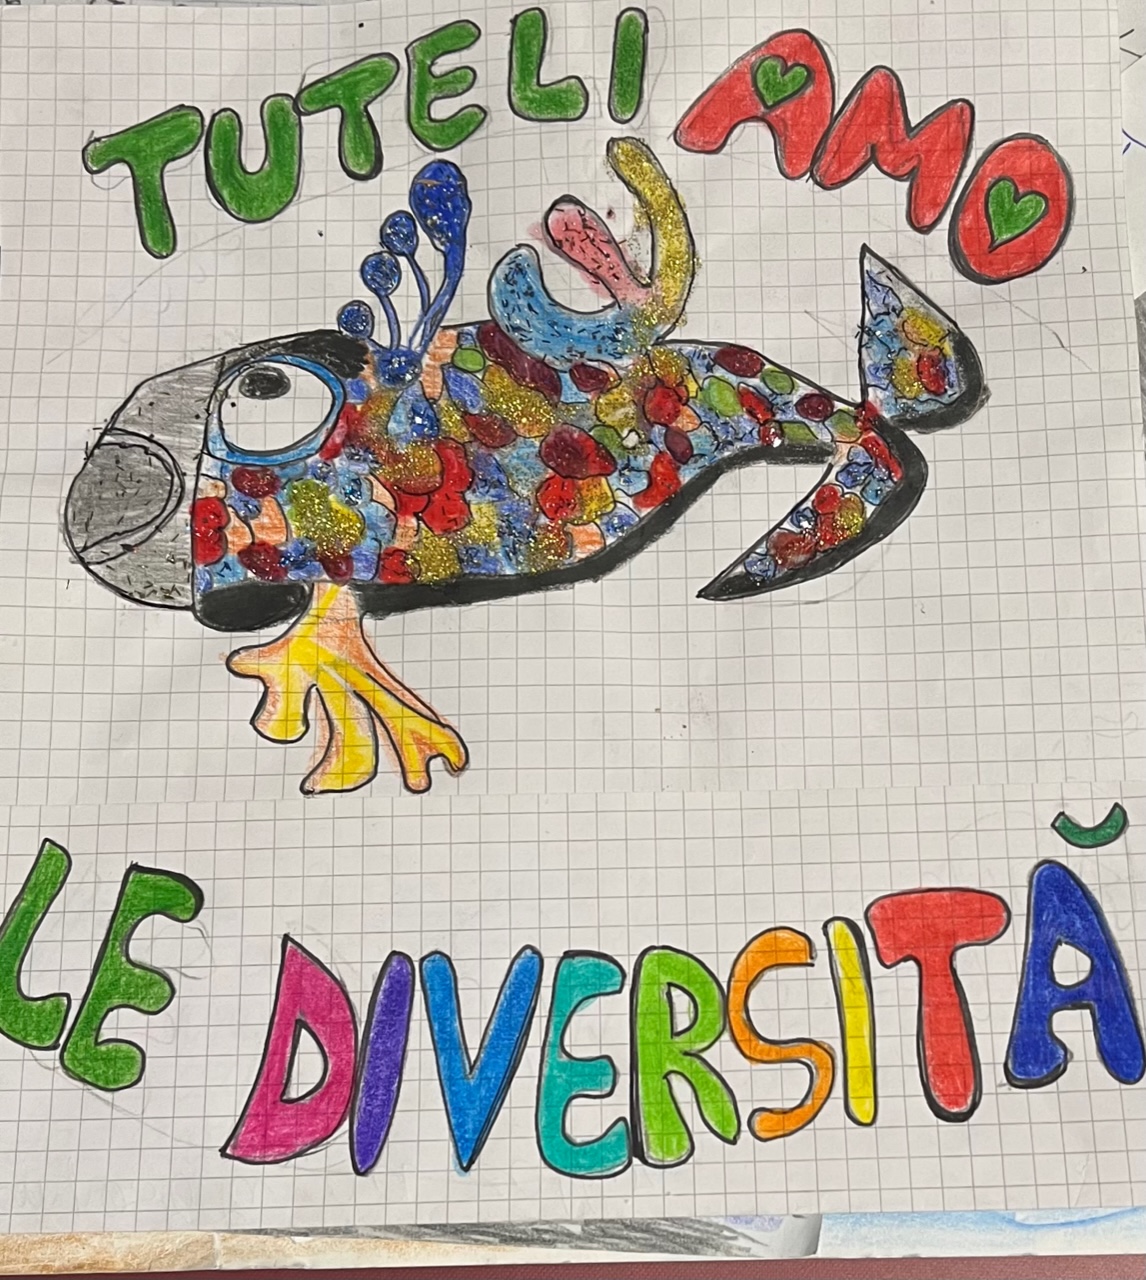 TUTELIAMO
LE DIVERSITĂ